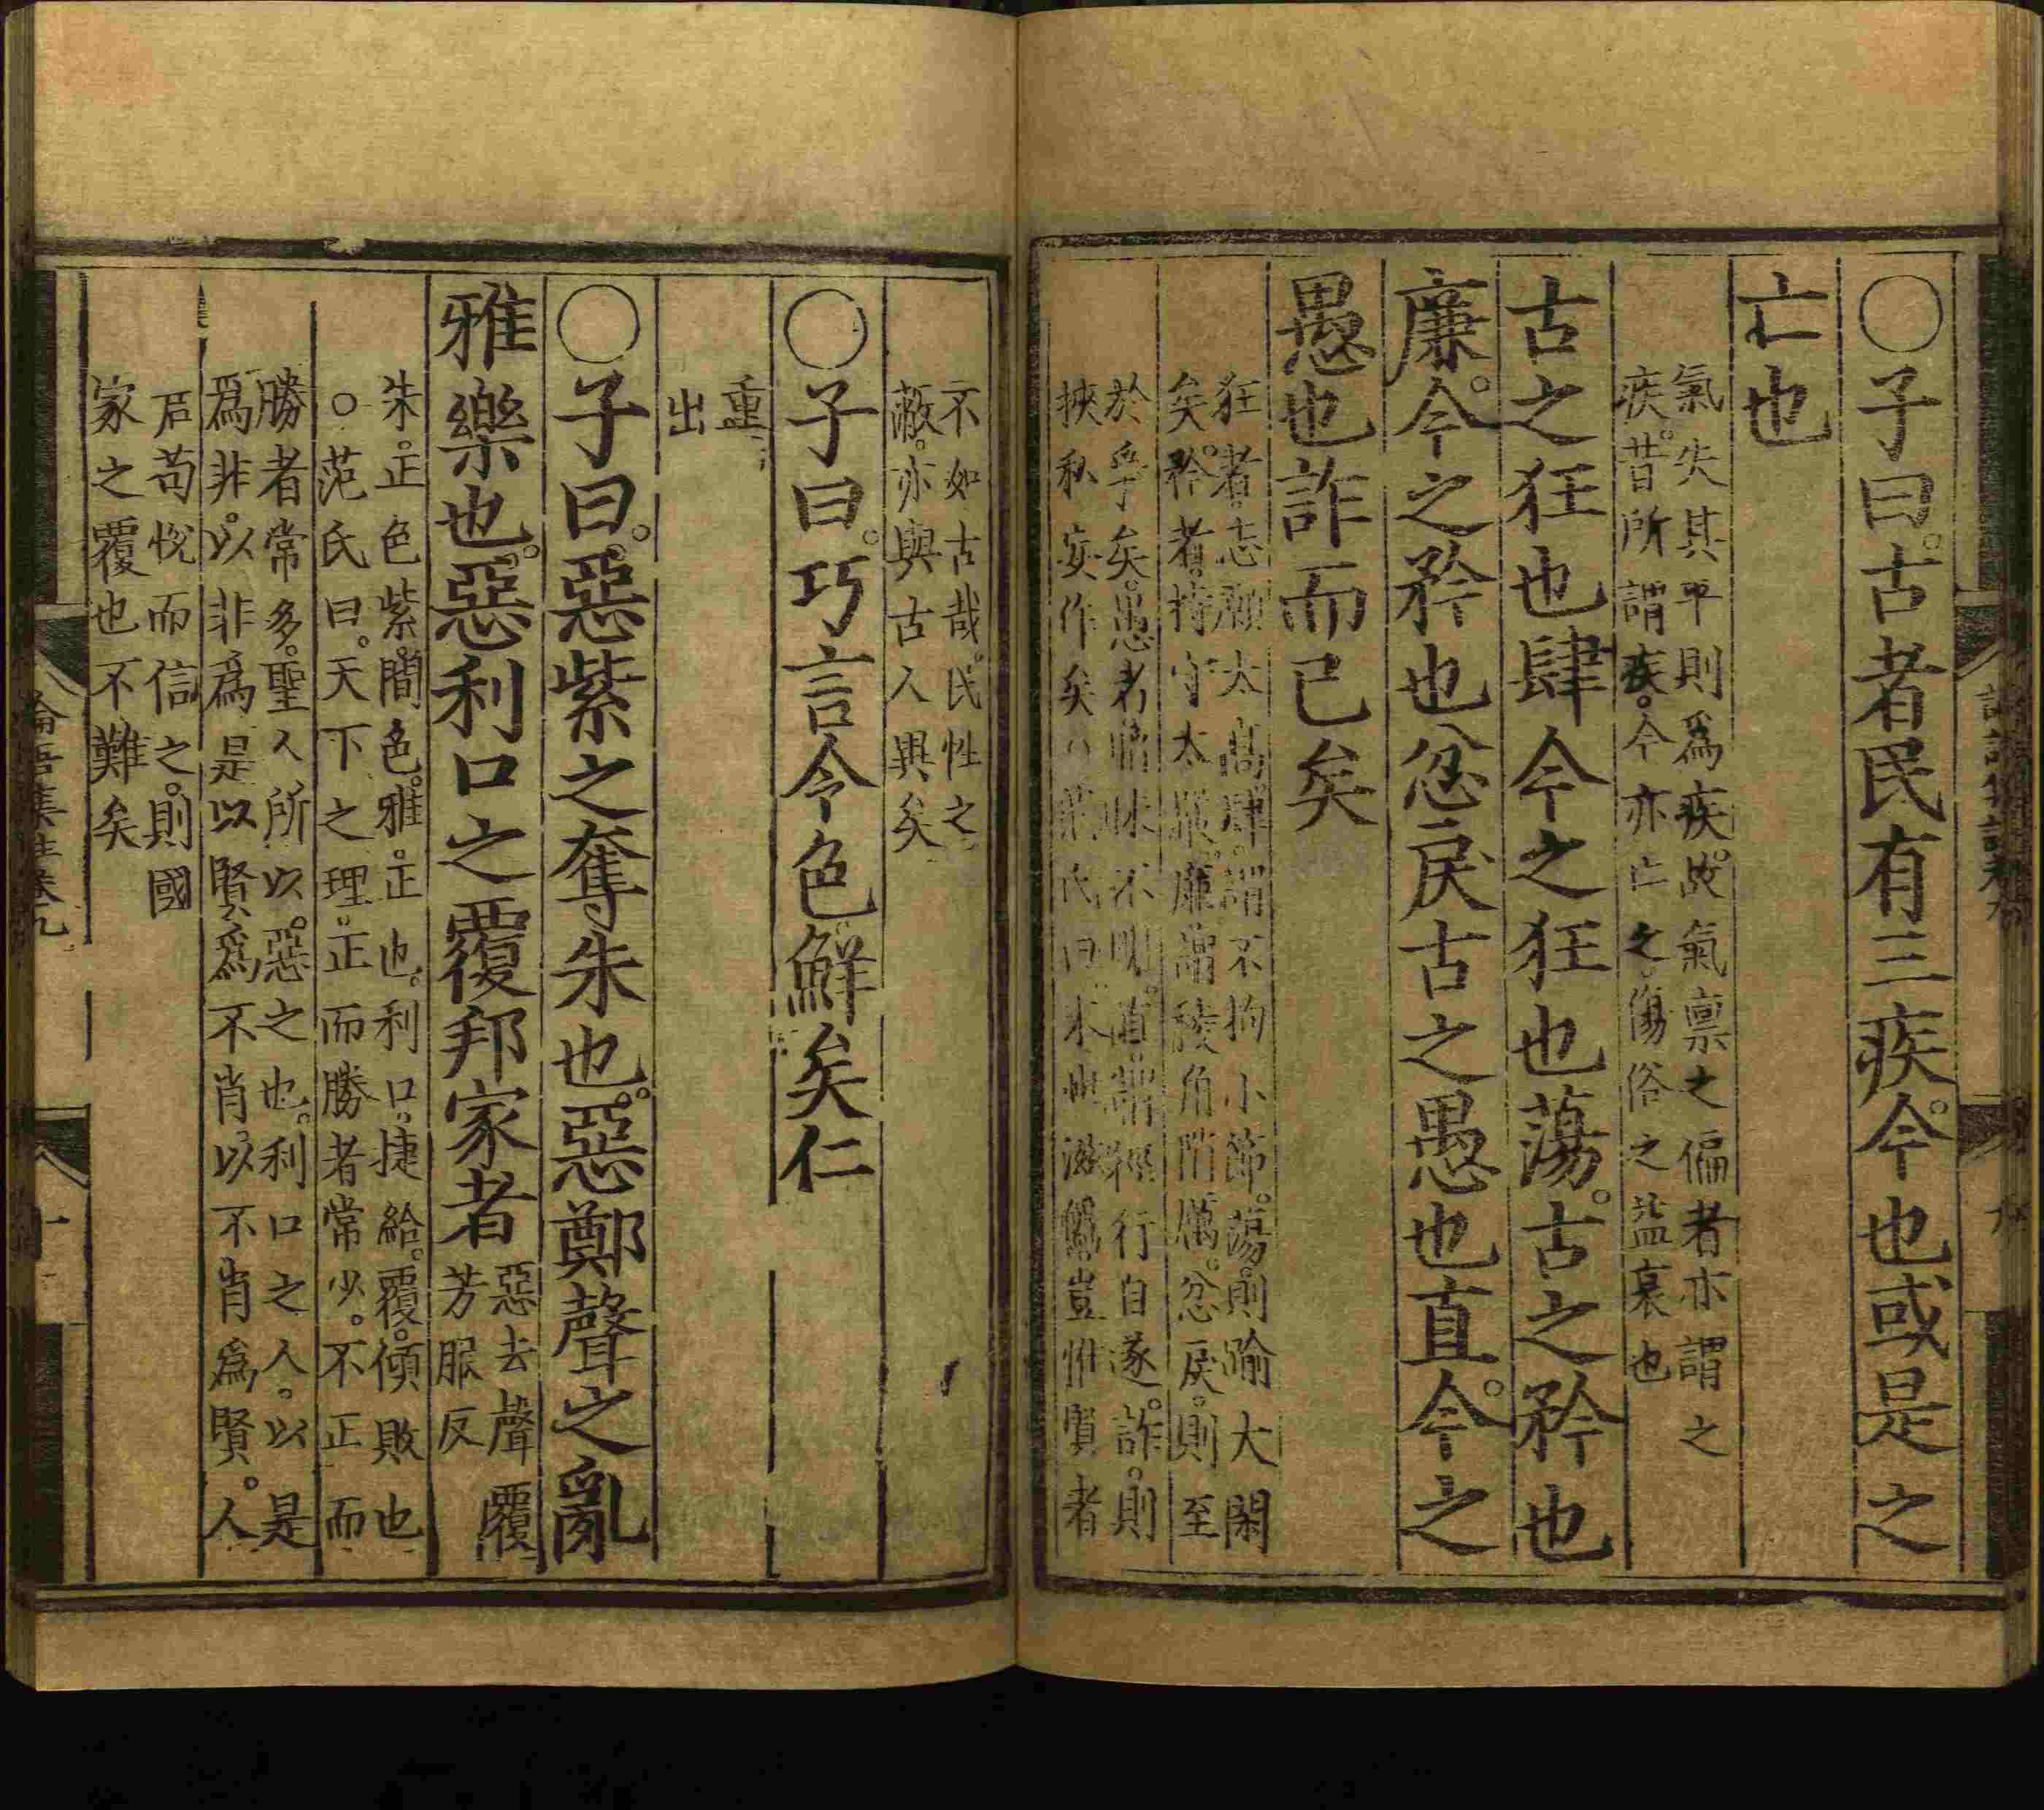 ○子曰。古者民有三疾。今也或是之
亡也
氣失其平則爲疾。故氣禀之偏者亦謂之
疾。昔所謂疾。今亦亡之。傷俗之益衰也
古之狂也肆今之狂也蕩。古之矜也
廉。今之矜也忿戾古之愚也直。今之
愚也詐而已矣
狂者。志願太高。肆。謂不拘小節。蕩。則踰大閑
矣。矜者。持守太嚴。廉。謂稜角陗厲。忿戾。則至
於爭矣。愚者。暗昧不明。直。謂徑行自遂。詐。則
挾私妄作矣○范氏曰。末世滋僞。豈惟賢者
不如古哉。民性之
蔽。亦與古人異矣
○子曰。巧言令色。鮮矣仁
重
出
○子曰。惡紫之奪朱也。惡鄭聲之亂
雅樂也。惡利口之覆邦家者
惡去聲覆
芳服反
朱。正色紫。間色。雅。正也。利口。捷給。覆。傾敗也
○范氏曰。天下之理。正而勝者常少。不正而
勝者常多。聖人所以。惡之也。利口之人。以是
爲非。以非爲是以賢爲不肖。以不肖爲賢。人
君苟悅而信之。則國
家之覆也不難矣
論語集註卷九